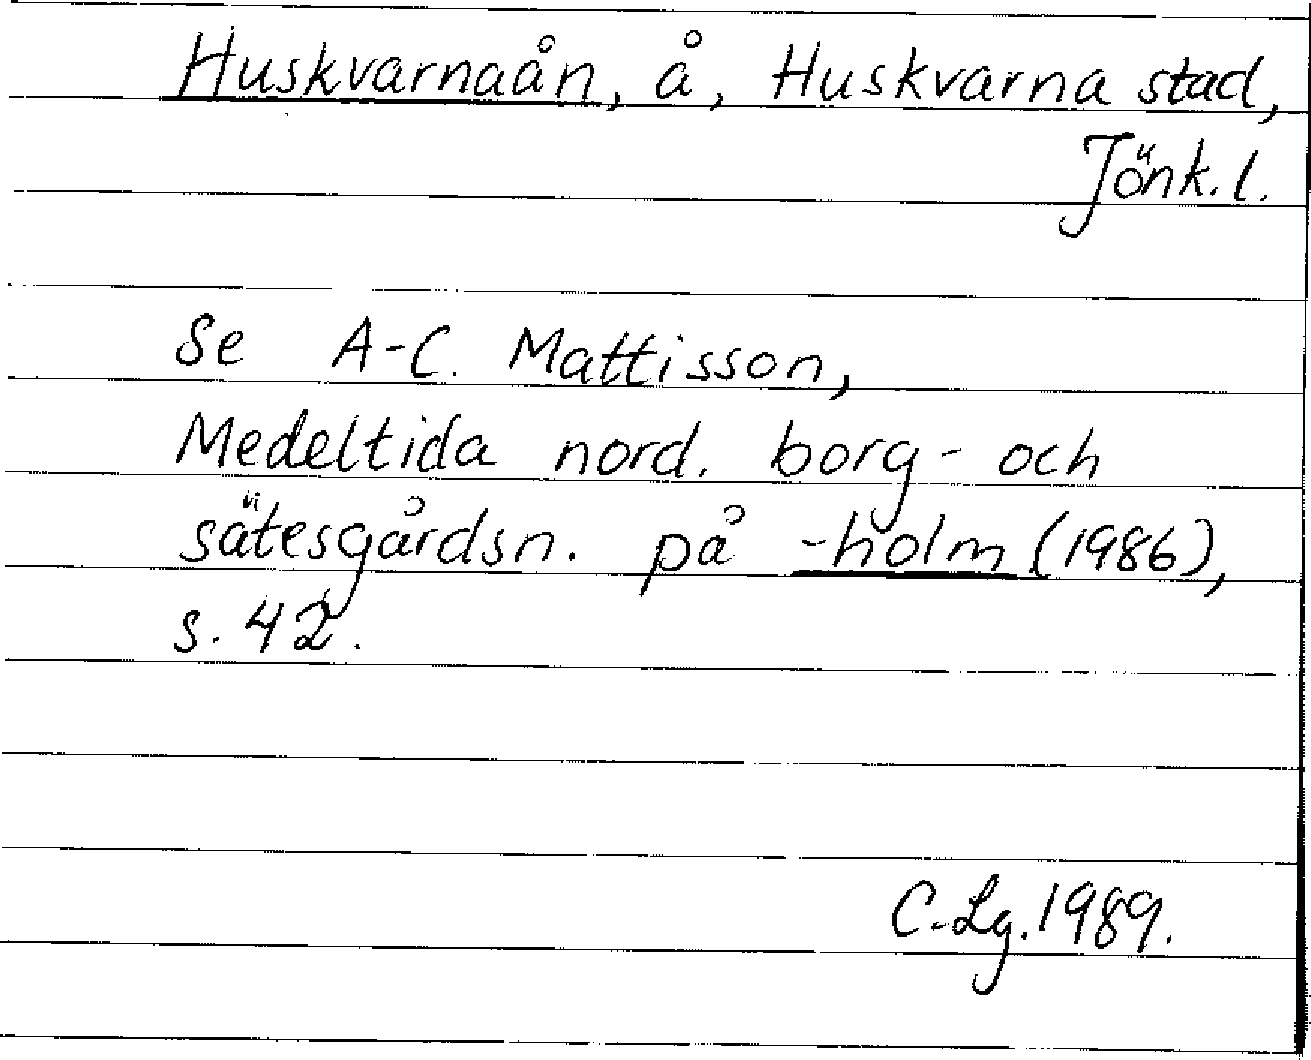 Huskvarnaån, å, Huskvarna stad,
Jönk. l.
Se A-C. Mattisson,
Medeltida nord. borg- och
sätesgårdsn. på -holm (1986),
s. 42.
C-Lg. 1989.